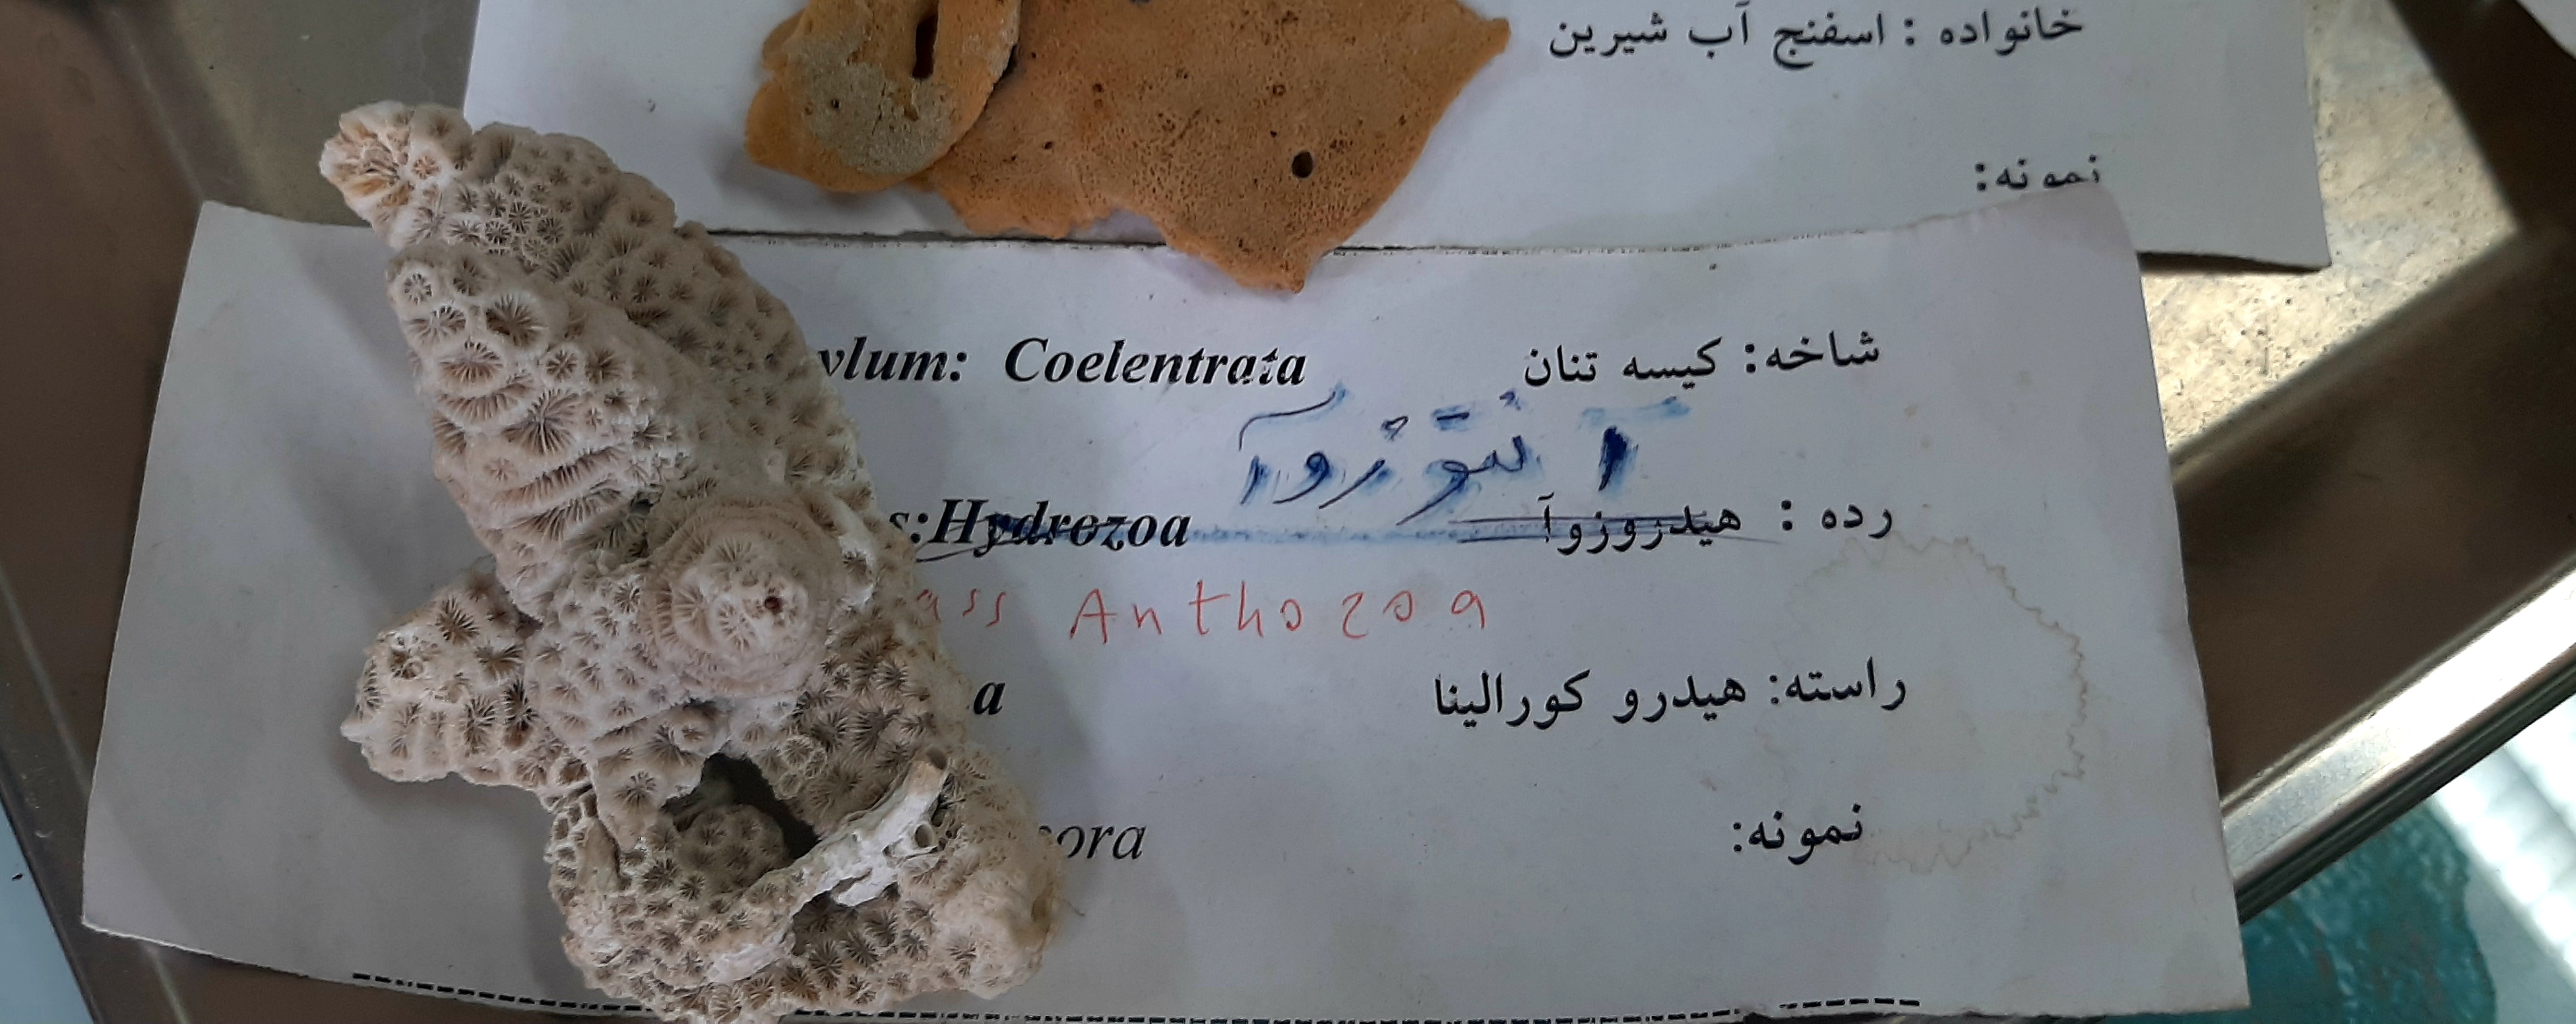 خانواده : اسفنج آب شیرین
نمونه:
ylum: Coelentrata شاخه: کیسه تنان
آنتوزوآ
s:Hydrozoa رده : هیدروزوآ
ass Anthozoa
a راسته: هیدرو کورالینا
ora نمونه: